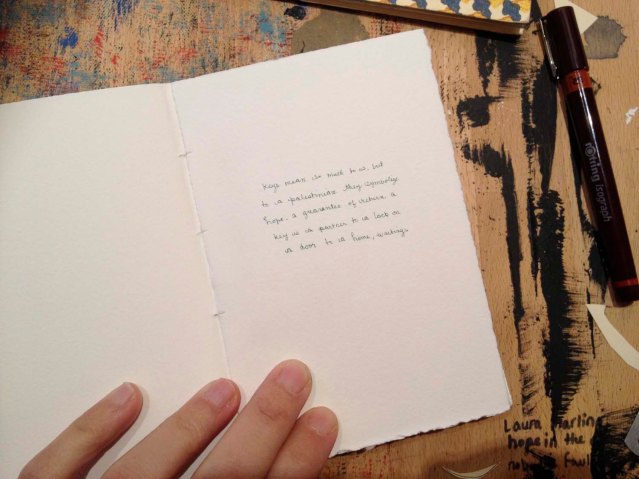 keys mean so much to us, but
to a palestinian they symbolize
hope. a guarantee of return. a
key is a partner to a lock on
a door to a home, waiting.
rotring isograph
Laura Martin
hope in the